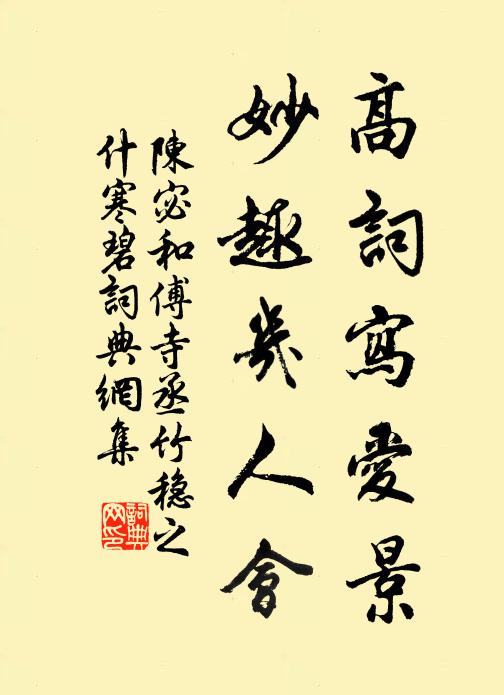 高詞寫愛景
妙趣幾人會
陳宓和傅寺丞竹穏之
什寒碧詞典網集
詞典網印